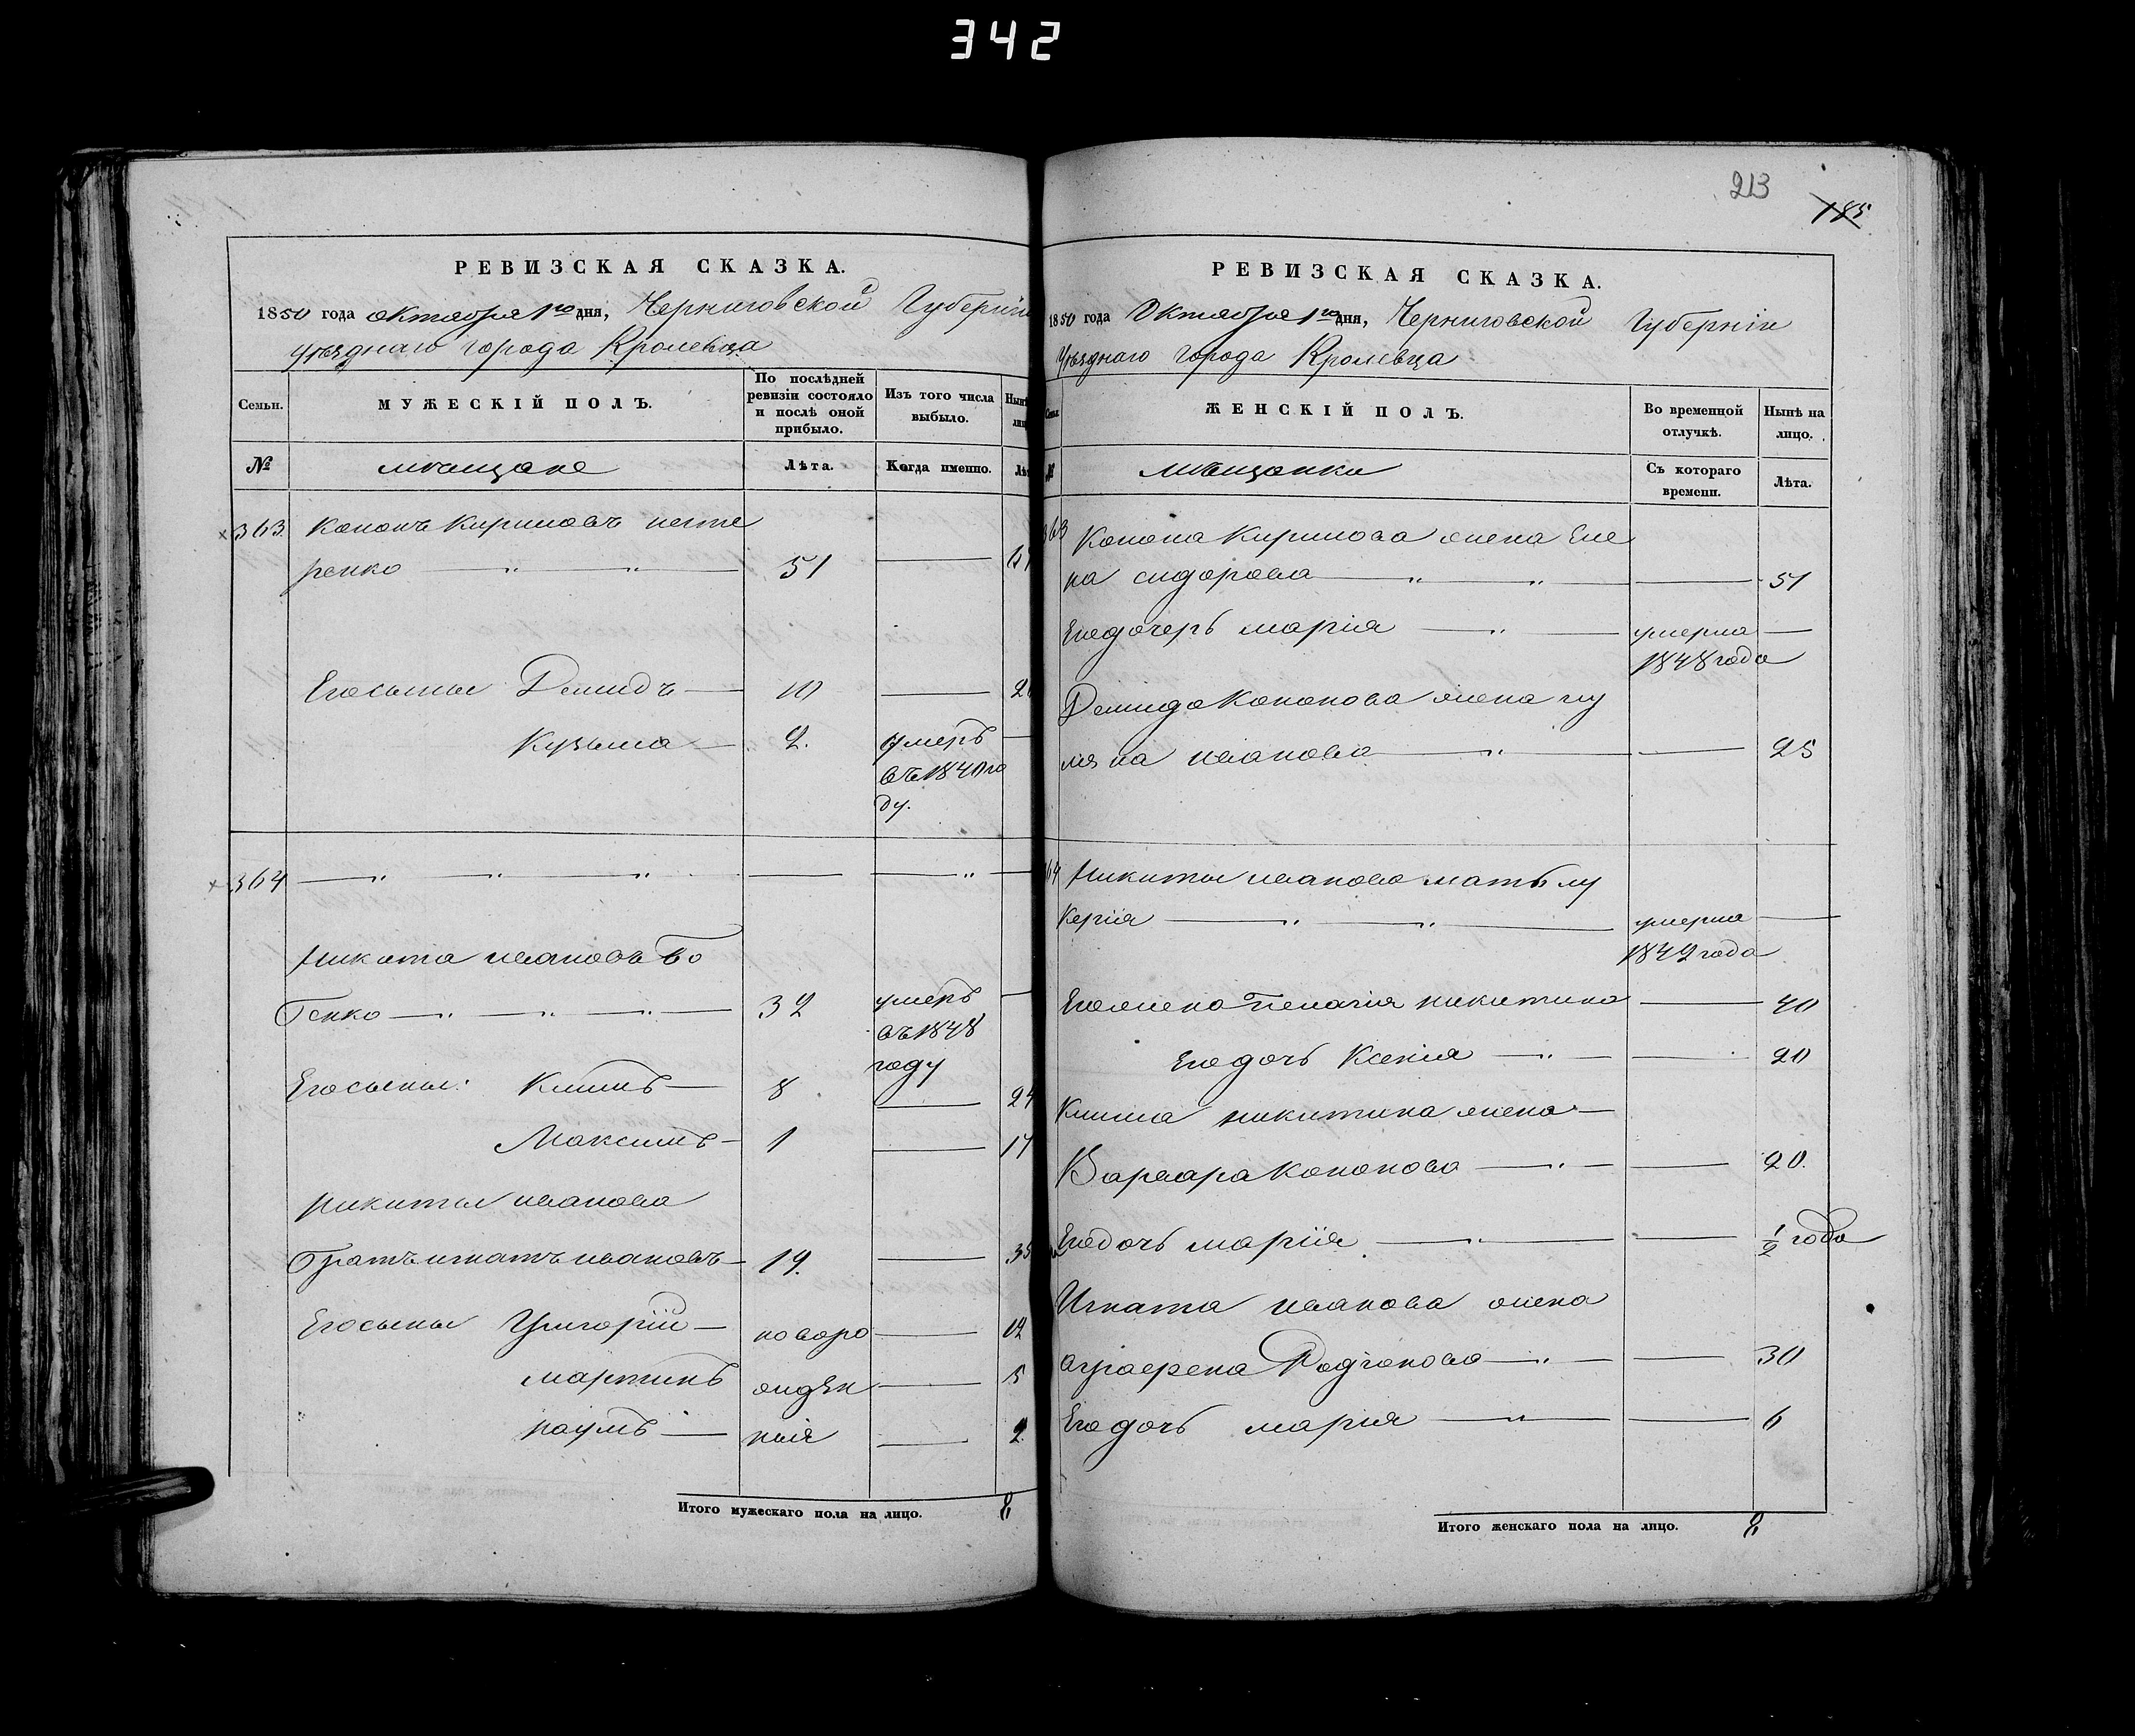 342
РЕВИЗСКАЯ СКАЗКА.
1850 года октября 1го дня, Черниговской Губерніи
уѣзднаго города Кролевца
Семьи.
МУЖЕСКІЙ ПОЛЪ.
По послѣдней ревизіи состояло и послѣ оной прибыло.
Изъ того числа выбыло.
№
мѣщане
Лѣта.
Когда именно.
363. Кононъ Кириловъ
ренко — " — " — 51 —
Его сыны Демидъ — 10 —
Кузьма — 2. умеръ —
въ 1840 го
ду.
364 — " — " — " —
Никита Ивановъ Бо
Генко — " — " — " — 32 умеръ —
въ 1848
году
Его сыны: Климъ — 8 — 24
Максимъ — 1 — 17
Никиты Иванова
братъ Игнатъ Ивановъ — 19. — 35
Его сыны Григорій — новоро — 12
Мартинъ ождѣн — 5
Наумъ — ныя — 2
Итого мужескаго пола на лицо. 8
213
185
РЕВИЗСКАЯ СКАЗКА.
1850 года Октября 1го дня, Черниговской Губерніи
Уѣзднаго города Кролевца
ЖЕНСКІЙ ПОЛЪ.
Во временной отлучкѣ.
Нынѣ на лицо.
№
мѣщанки
Съ котораго времени.
Лѣта.
363 Конона Кирилова жена Еле
на Сидорова — " — " — — 51
Его дочерь Марія — " — умерла —
1848 года
Демида Кононова жена Іу
ліяна Иванова — " — — 25
364 Никиты Иванова мать Лу
керія — " — " — умерла —
1842 года
Его жена Пелагія Никитина — 40
Его дочь Ксенія — " — — 20
Клима Никитина жена —
Варвара Кононова — " — — 20.
Его дочь Марія — " — — 1/2 года
Игната Иванова жена
Агрефена Родіонова — " — — 30
Его дочь Марія — " — — 6
Итого женскаго пола на лицо. 8